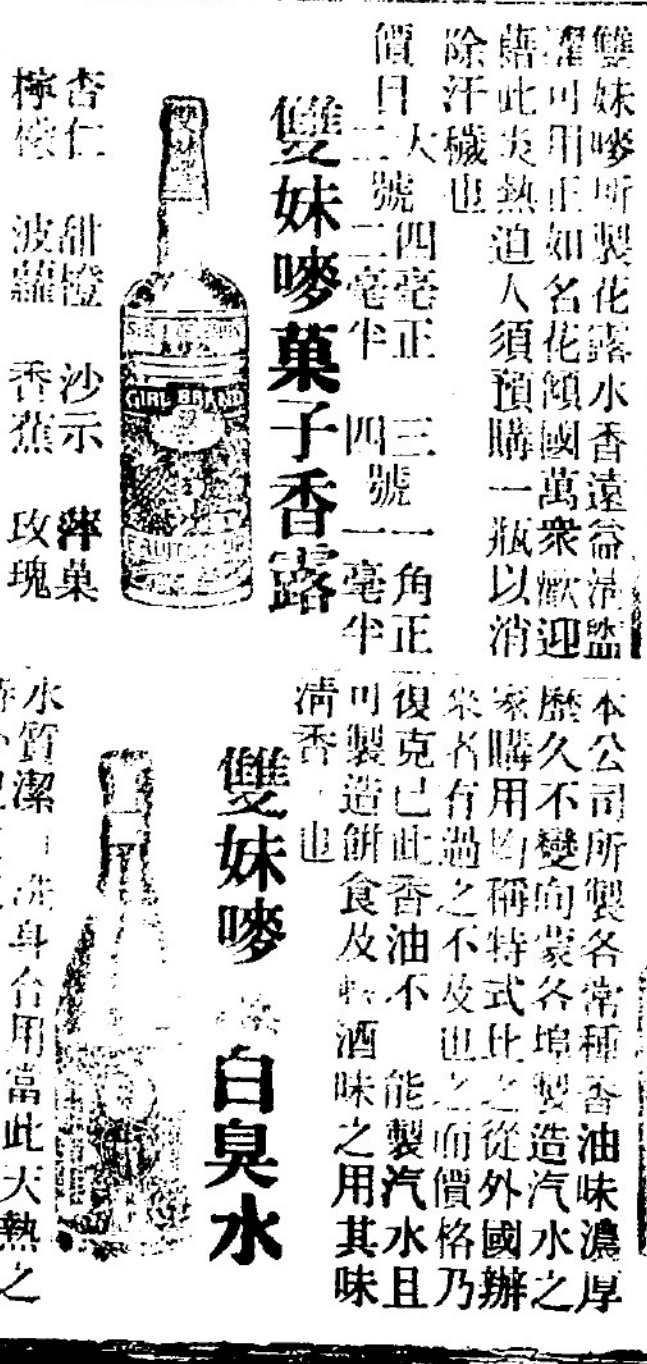 雙妹嘜所製花露水香遠益清
可用正如名花傾國萬衆歡迎
此炎熱迫人須預購一瓶以消
除汗穢也
價目 大號四毫正 三號一角正
二號二毫半 四號一毫半
雙妹嘜菓子香露
雙妹嘜
GIRL BRAND
杏仁 甜橙 沙示 菓
檸檬 波蘿 香蕉 玫瑰
本公司所製各常種香油味濃厚
歷久不變向蒙各埠製造汽水之
家購用均稱特式比之從外國辦
來者有過之不及也而價格乃
復克己此香油不能製汽水且
可製造餅食及酒味之用其味
清香也
雙妹嘜白臭水
水質潔洗身合用當此大熱之